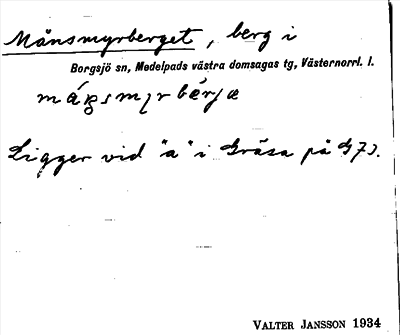 Månsmyrberget, berg i
Borgsjö sn, Medelpads västra domsagas tg, Västernorrl. l.
Ligger vid "a" i Gräsa på
VALTER JANSSON 1934